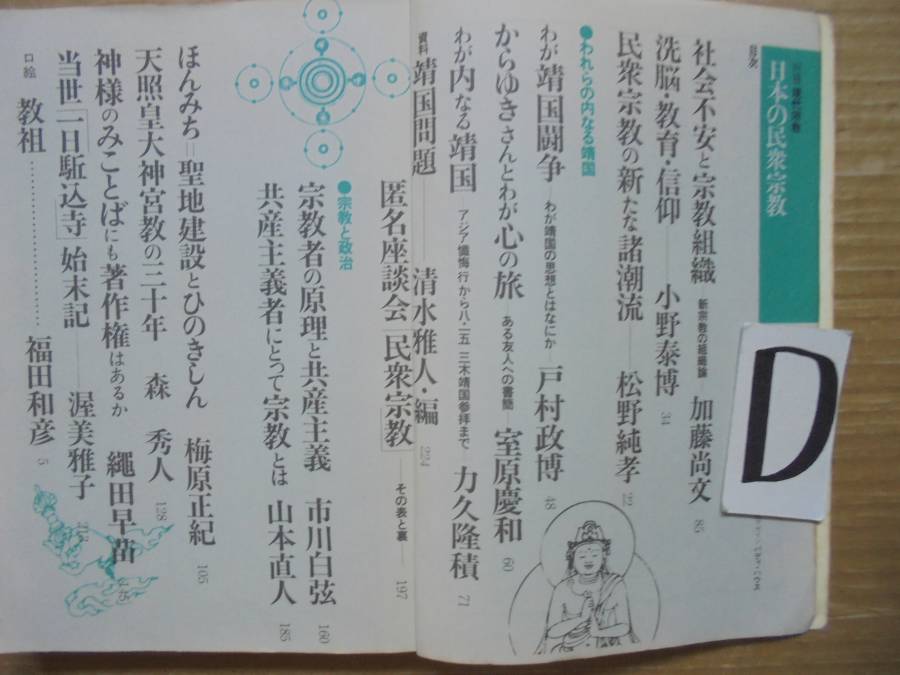 目次
日本の民衆宗教
社会不安と宗教組織 新宗教の組織論 加藤尚文 85
洗脳・教育・信仰――小野泰博 34
民衆宗教の新たな諸潮流――松野純孝 22
●われらの内なる靖国
わが靖国闘争 わが靖国の思想とはなにか 戸村政博 48
からゆきさんとわが心の旅 ある友人への書簡 室原慶和 60
わが内なる靖国 アジア懺悔行から八・一五三木靖国参拝まで 力久隆積 71
資料 靖国問題――清水雅人・編 224
匿名座談会「民衆宗教」――その表と裏―― 197
●宗教と政治
宗教者の原理と共産主義 市川白弦 160
共産主義者にとって宗教とは 山本直人 185
ほんみち＝聖地建設とひのきしん 梅原正紀 105
天照皇大神宮教の三十年 森 秀人 128
神様のみことばにも著作権はあるか 繩田早苗
当世「一日駈込寺」始末記――渥美雅子
口絵 教祖…………福田和彦 5
D